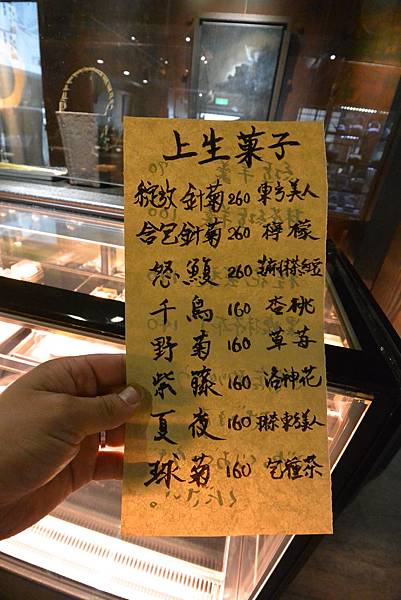 上生菓子
綻放針菊260 東方美人
含包針菊260 檸檬
怒鰒260
千鳥160 杏桃
野菊160 草莓
紫藤160 洛神花
夏夜160 東方美人
球菊160 包種茶